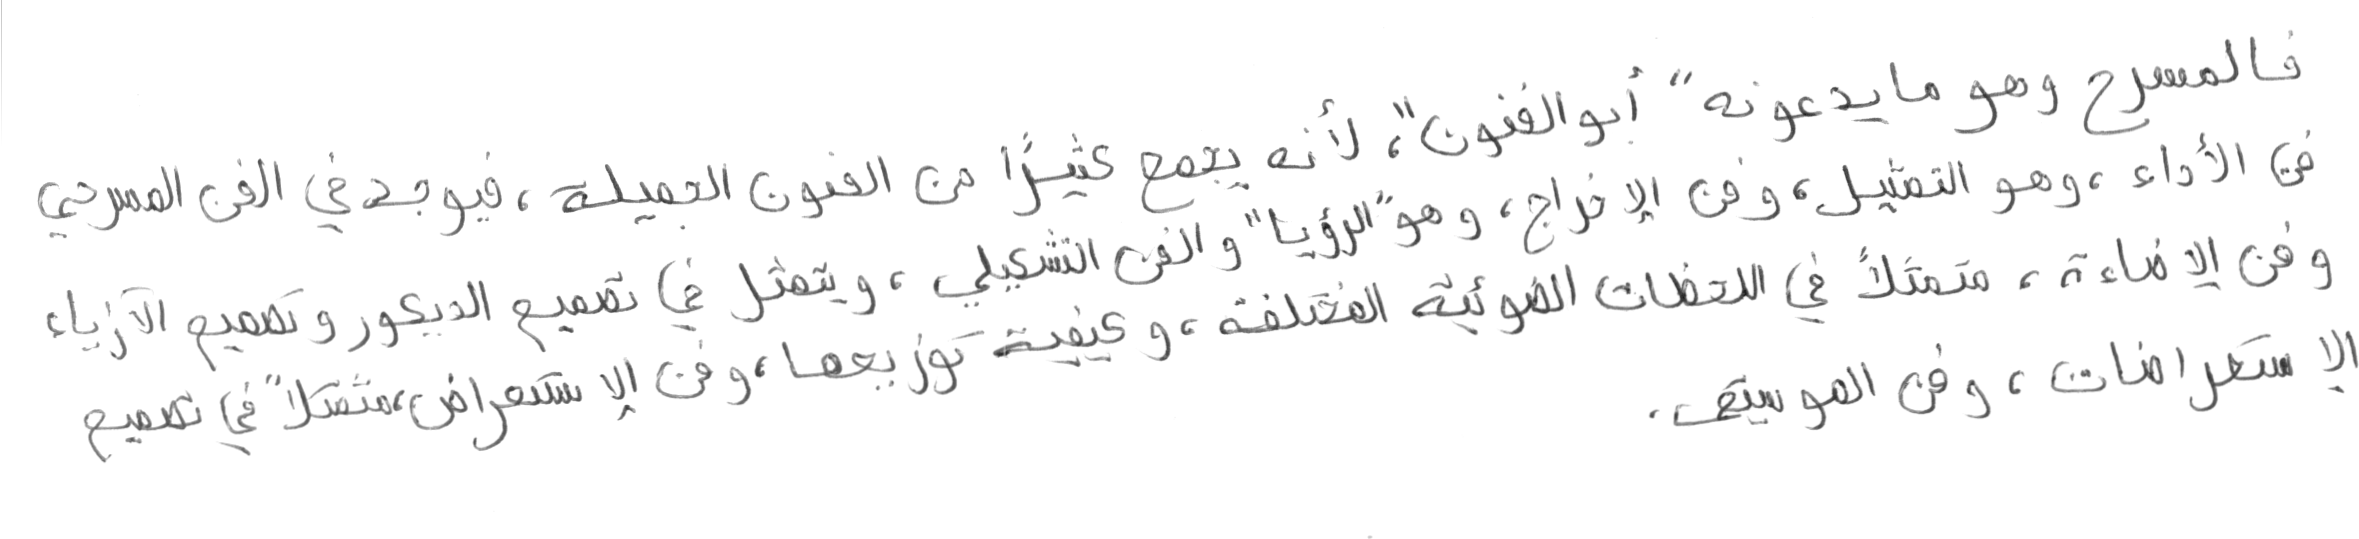 فالمسرح وهو ما يدعونه "أبو الفنون"، لأنه يجمع كثيرًا من الفنون الجميلة، فيوجد في الفن المسرحي
فن الأداء، وهو التمثيل، وفن الإخراج، وهو "الرؤيا" والفن التشكيلي، ويتمثل في تصميم الديكور وتصميم الأزياء
وفن الإضاءة، متمثلاً في اللحظات الضوئية المختلفة، وكيفية توزيعها، وفن الإستعراض، متمثلاً في تصميم
الإستعراضات، وفن الموسيقى.